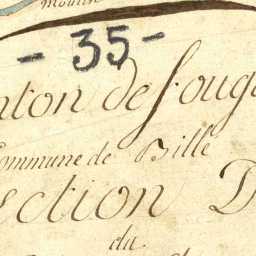 moulin
- 35 -
nton de foug
Commune de Bille
ection D
da